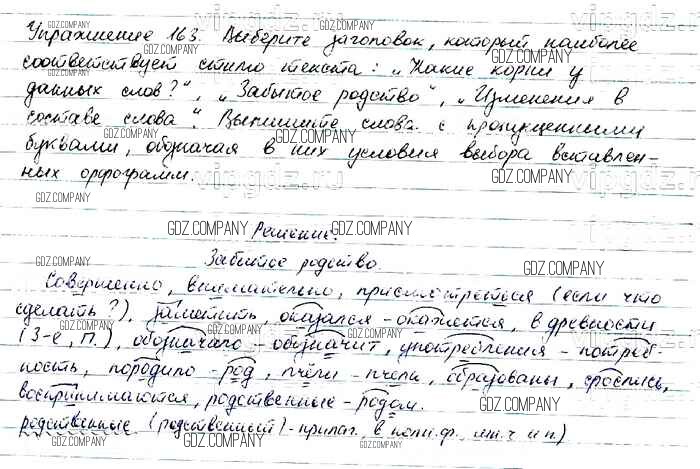 Упражнение 163. Выберите заголовок, который наиболее
соответствует стилю текста: „Какие корни у
данных слов?“, „Забытое родство“, „Изменения в
составе слова“. Выпишите слова с пропущенными
буквами, обозначая в них условия выбора вставлен-
ных орфограмм.
Решение:
Забытое родство.
Совершенно, внимательно, присмотреться (если что
сделать?), заметить, оказался - окажется, в древности
(3-е, П.), обозначало - обозначит, употребления - потреб-
ность, породило - род, пчёлы - пчела, образованы, срослись,
воспринимаются, родственные - родом.
родственные (родственност) - прилаг. в полн.ф. мн.ч. и п.)
GDZ.COMPANY
vipgdz.ru